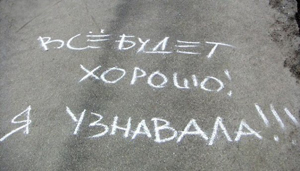 ВСЁ БУДЕТ
ХОРОШО!
Я УЗНАВАЛА!!!